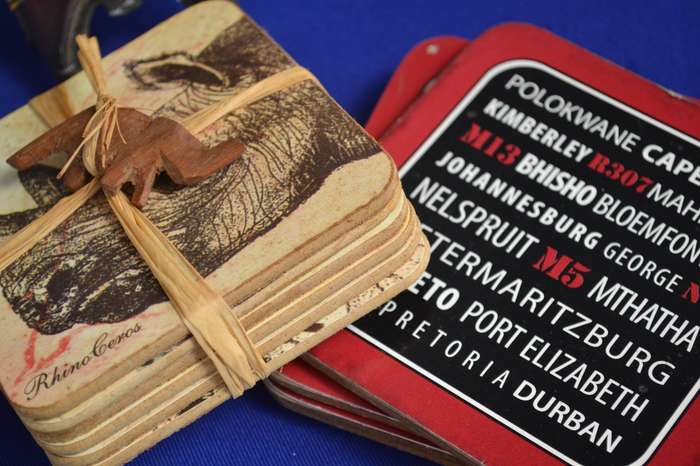 RhinoCeros
POLOKWANE CAPE
KIMBERLEY R307 MAF
M13 BHISHO BLOEMFON
JOHANNESBURG GEORGE
NELSPRUIT M5 MTHATHA
TERMARITZBURG
ETO PORT ELIZABETH
PRETORIA DURBAN